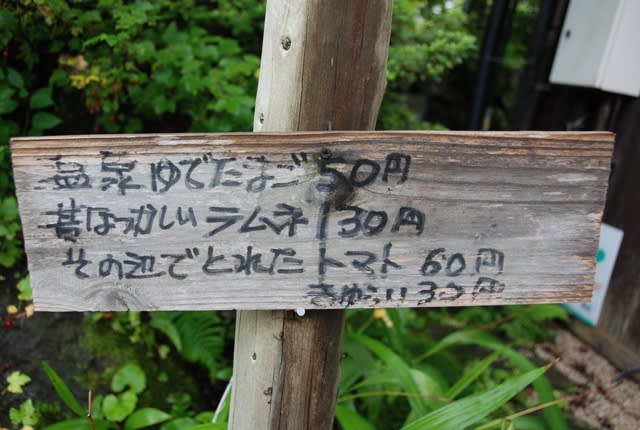 温泉ゆでたまご 50円
昔なつかしいラムネ 130円
その辺でとれたトマト 60円
きゅうり 30円